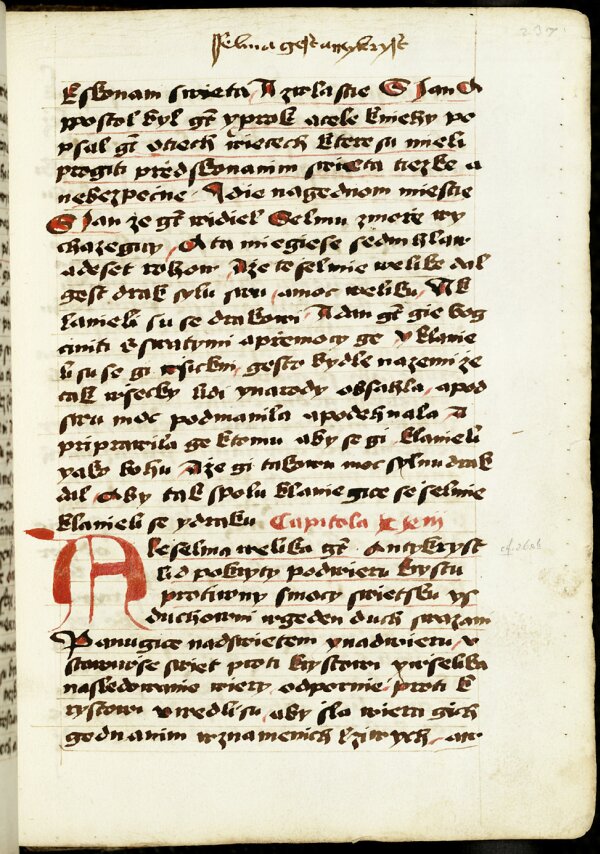 sselma gest antykryst
237
kskonani swieta A zwlastie S Jan A
postol byl gt yprok acele kniehy po
psal gt otiech wiecech ktere su mieli
progiti przed skonanim swieta tiezke a
nebezpecne A die nagednom miestie
S Jan ze gt widiel Selmu zmorze wy
chazegicy A ta miegiese sedm hlaw
adeset rohow A ze te selmie welike dal
gest drak sylu swu amoc weliku A k
lanieli su se drakowi A dan gt gie bog
ciniti s swatymi apremocy ge y klanie
li su se gi wsickni gesto bydle nazemi ze
tak wsecky lidi ynarody obsahla apod
swu moc podmanila apodehnala A
pripravila ge ktomu aby se gi klanieli
yako bohu A ze gi takowu moc sylnu drak
dal Aby tak spolu klaniegice se selmie
klanieli se ydraku Capitola
Ale selma welika gt Antykryst
lid pokryty podwieru krystu
protiwny smocy swietsku ys
duchowni wgeden duch swazani
Panugice nadswietem ynadwieru
swiet proti krystowi ywselika
nasledowanie wiery odpornie proti k
rystowi uwedli su aby sla wiera gich
gednanim wznamenich lziwych aw